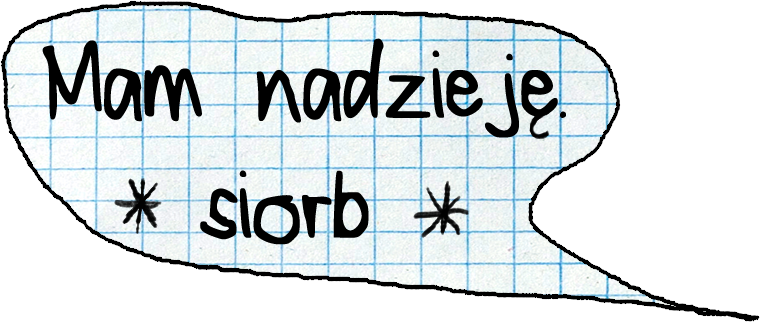 Mam nadzieję.
* siorb *